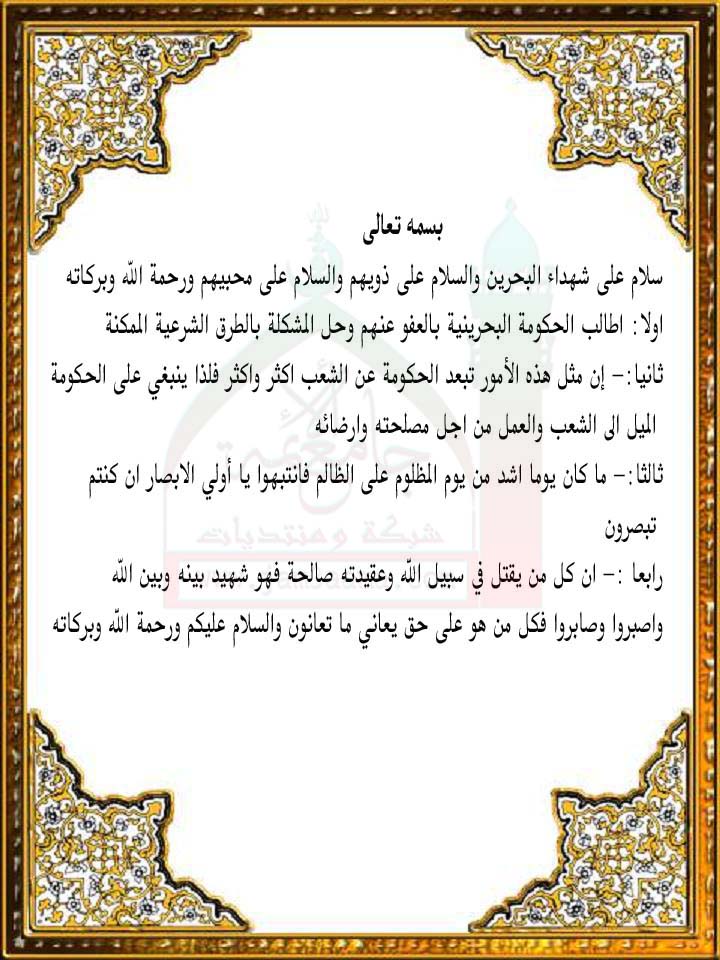 بسمه تعالى
سلام على شهداء البحرين والسلام على ذويهم والسلام على محبيهم ورحمة الله وبركاته
اولا: اطالب الحكومة البحرينية بالعفو عنهم وحل المشكلة بالطرق الشرعية الممكنة
ثانيا:- إن مثل هذه الأمور تبعد الحكومة عن الشعب اكثر واكثر فلذا ينبغي على الحكومة
الميل الى الشعب والعمل من اجل مصلحته وارضائه
ثالثا:- ما كان يوما اشد من يوم المظلوم على الظالم فانتبهوا يا أولي الابصار ان كنتم
تبصرون
رابعا :- ان كل من يقتل في سبيل الله وعقيدته صالحة فهو شهيد بينه وبين الله
واصبروا وصابروا فكل من هو على حق يعاني ما تعانون والسلام عليكم ورحمة الله وبركاته
شبكة ومنتديات